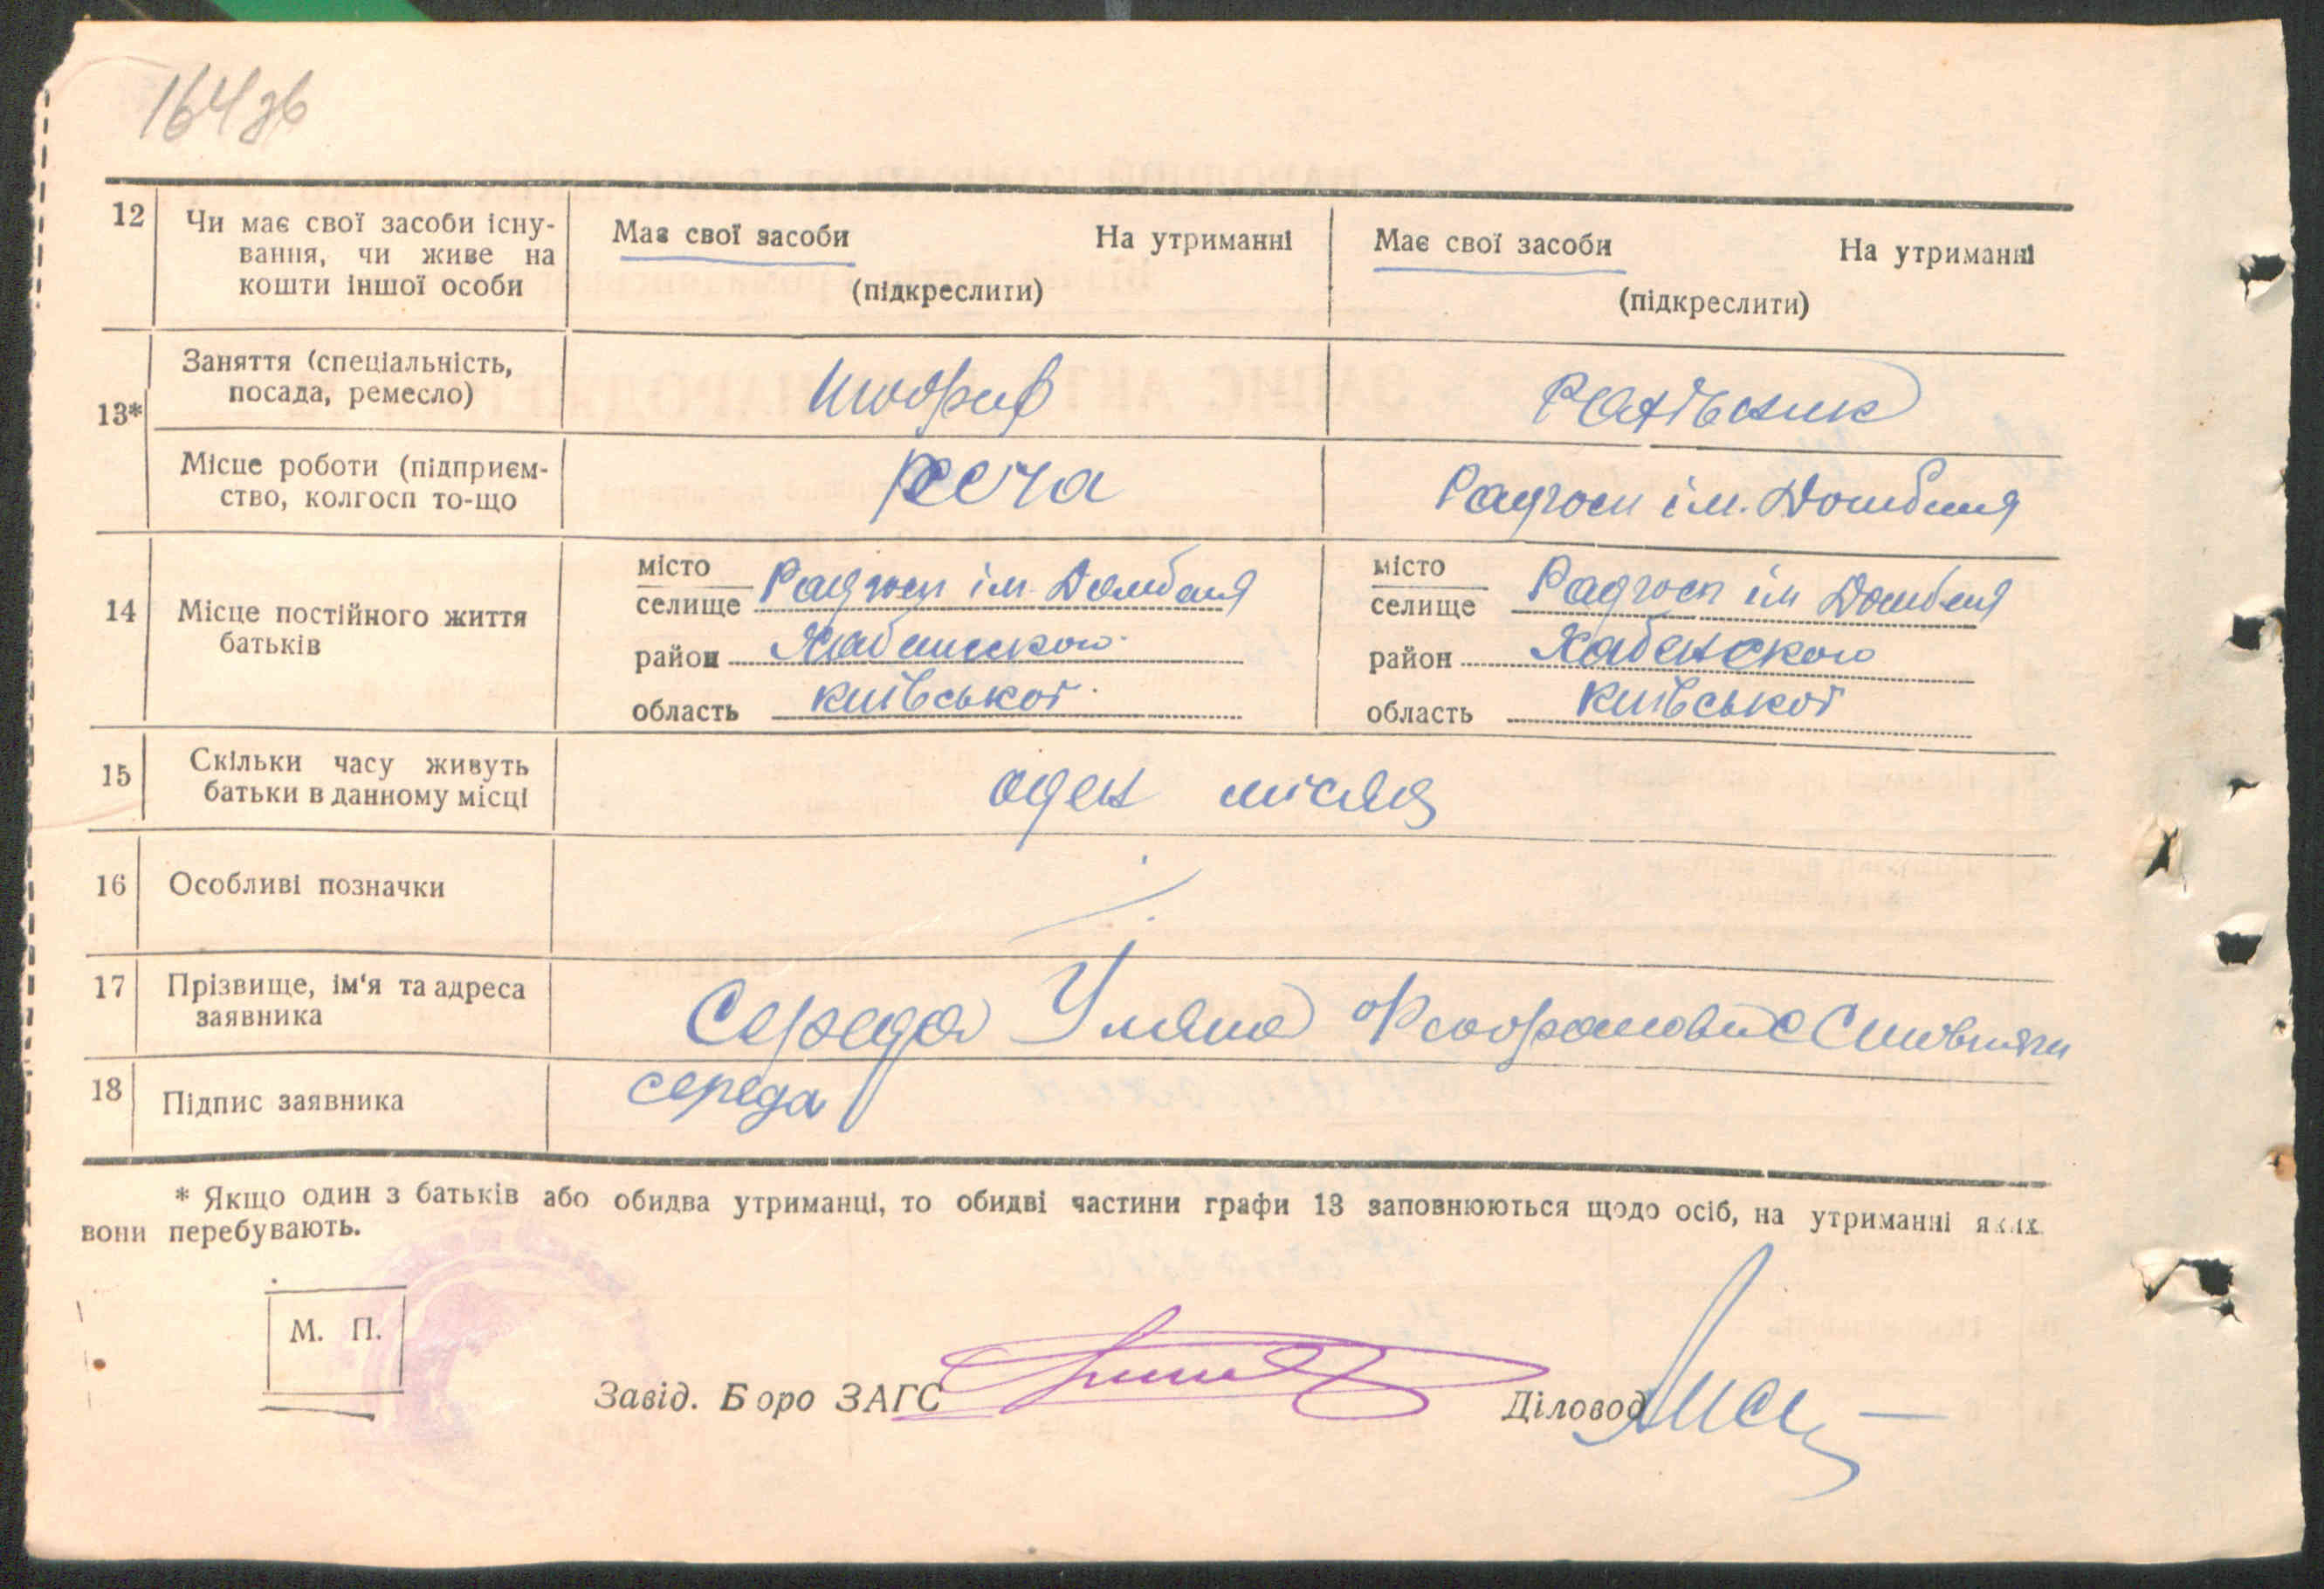 164 зв
12
Чи має свої засоби існу-
вання, чи живе на
кошти іншої особи
Має свої засоби На утриманні
(підкреслити)
Має свої засоби На утриманні
(підкреслити)
13*
Заняття (спеціальність,
посада, ремесло)
Місце роботи (підприєм-
ство, колгосп то-що
Радгосп ім. Домбаля
14
Місце постійного життя
батьків
місто
селище Радгосп ім. Домбаля
район
область Київської
місто
селище Радгосп ім Домбаля
район Хабенского
область Київської
15
Скільки часу живуть
батьки в данному місці
один місяць
16
Особливі позначки
17
Прізвище, ім'я та адреса
заявника
Середа Уляна
18
Підпис заявника
середа
* Якщо один з батьків або обидва утриманці, то обидві частини графи 13 заповнюються щодо осіб, на утриманні яких
вони перебувають.
М. П.
Завід. Бюро ЗАГС
Діловод